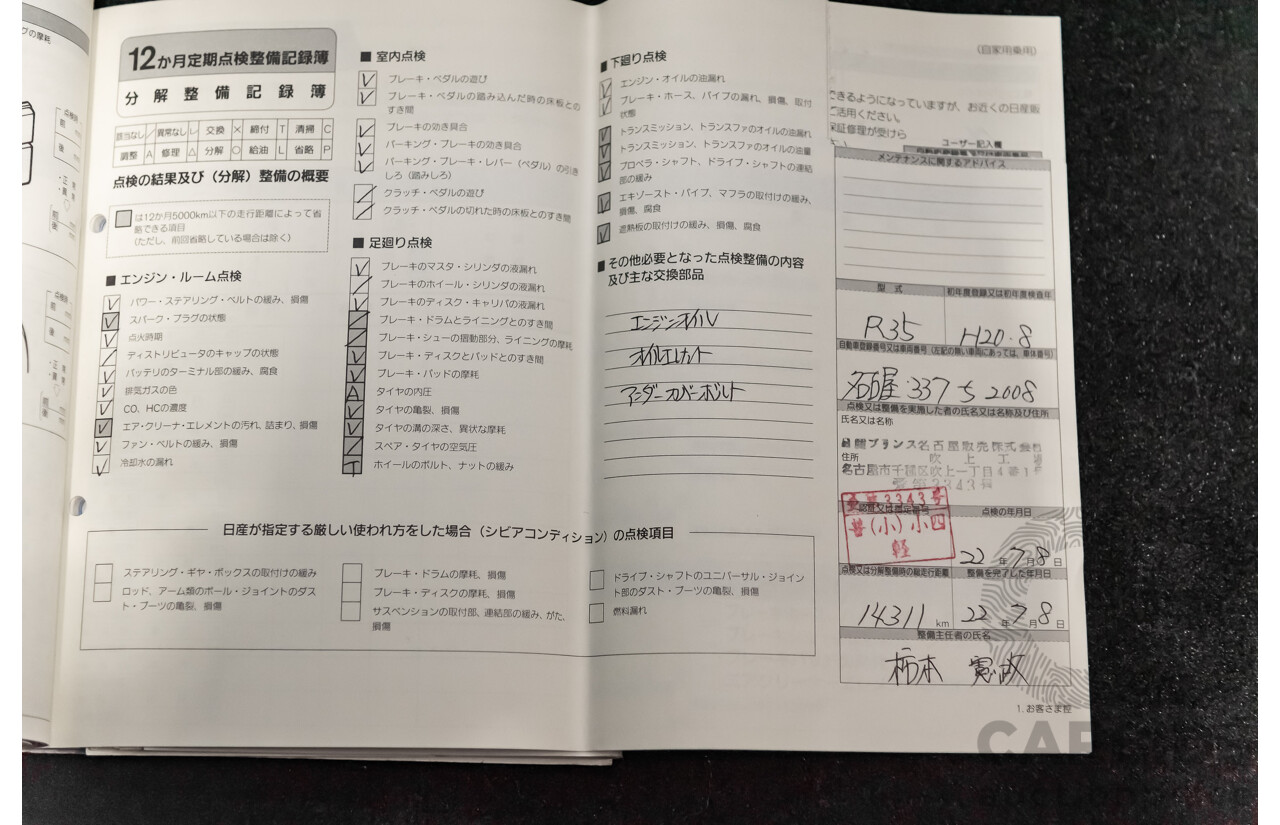 プの摩耗
点検時
前
後
12か月定期点検整備記録簿
分解整備記録簿
該当なし / 異常なし レ 交換 × 締付 T 清掃 C
調整 A 修理 △ 分解 ○ 給油 L 省略 P
点検の結果及び（分解）整備の概要
は12か月5000km以下の走行距離によって省
略できる項目
（ただし、前回省略している場合は除く）
■ エンジン・ルーム点検
パワー・ステアリング・ベルトの緩み、損傷
スパーク・プラグの状態
点火時期
ディストリビュータのキャップの状態
バッテリのターミナル部の緩み、腐食
排気ガスの色
CO、HCの濃度
エア・クリーナ・エレメントの汚れ、詰まり、損傷
ファン・ベルトの緩み、損傷
冷却水の漏れ
■ 室内点検
ブレーキ・ペダルの遊び
ブレーキ・ペダルの踏み込んだ時の床板との
すき間
ブレーキの効き具合
パーキング・ブレーキの効き具合
パーキング・ブレーキ・レバー（ペダル）の引き
しろ（踏みしろ）
クラッチ・ペダルの遊び
クラッチ・ペダルの切れた時の床板とのすき間
■ 足廻り点検
ブレーキのマスタ・シリンダの液漏れ
ブレーキのホイール・シリンダの液漏れ
ブレーキのディスク・キャリパの液漏れ
ブレーキ・ドラムとライニングとのすき間
ブレーキ・シューの摺動部分、ライニングの摩耗
ブレーキ・ディスクとパッドとのすき間
ブレーキ・パッドの摩耗
タイヤの内圧
タイヤの亀裂、損傷
タイヤの溝の深さ、異状な摩耗
スペア・タイヤの空気圧
ホイールのボルト、ナットの緩み
■ 下廻り点検
エンジン・オイルの油漏れ
ブレーキ・ホース、パイプの漏れ、損傷、取付
状態
トランスミッション、トランスファのオイルの油漏れ
トランスミッション、トランスファのオイルの油量
プロペラ・シャフト、ドライブ・シャフトの連結
部の緩み
エキゾースト・パイプ、マフラの取付けの緩み、
損傷、腐食
遮熱板の取付けの緩み、損傷、腐食
■ その他必要となった点検整備の内容
及び主な交換部品
エンジンオイル
オイルエレメント
アンダーカバーボルト
日産が指定する厳しい使われ方をした場合（シビアコンディション）の点検項目
ステアリング・ギヤ・ボックスの取付けの緩み
ロッド、アーム類のボール・ジョイントのダス
ト・ブーツの亀裂、損傷
ブレーキ・ドラムの摩耗、損傷
ブレーキ・ディスクの摩耗、損傷
サスペンションの取付部、連結部の緩み、がた、
損傷
ドライブ・シャフトのユニバーサル・ジョイン
ト部のダスト・ブーツの亀裂、損傷
燃料漏れ
（自家用乗用）
できるようになっていますが、お近くの日産販
ご活用ください。
保証修理が受けら
ユーザー記入欄
メンテナンスに関するアドバイス
型 式 初年度登録又は初年度検査年
R35 H20.8
自動車登録番号又は車両番号（左記の無い車両にあっては、車体番号）
名古屋 337 ち 2008
点検又は整備を実施した者の氏名又は名称及び住所
氏名又は名称
日産プリンス名古屋販売株式会社
住所 吹上工場
名古屋市千種区吹上一丁目4番1号
愛第3343号
認証又は指定番号 点検の年月日
愛第3343号
普(小)小四
軽
22年7月8日
点検又は分解整備時の総走行距離 整備を完了した年月日
14311 km 22年7月8日
整備主任者の氏名
柿本 憲政
1.お客さま控
CAR